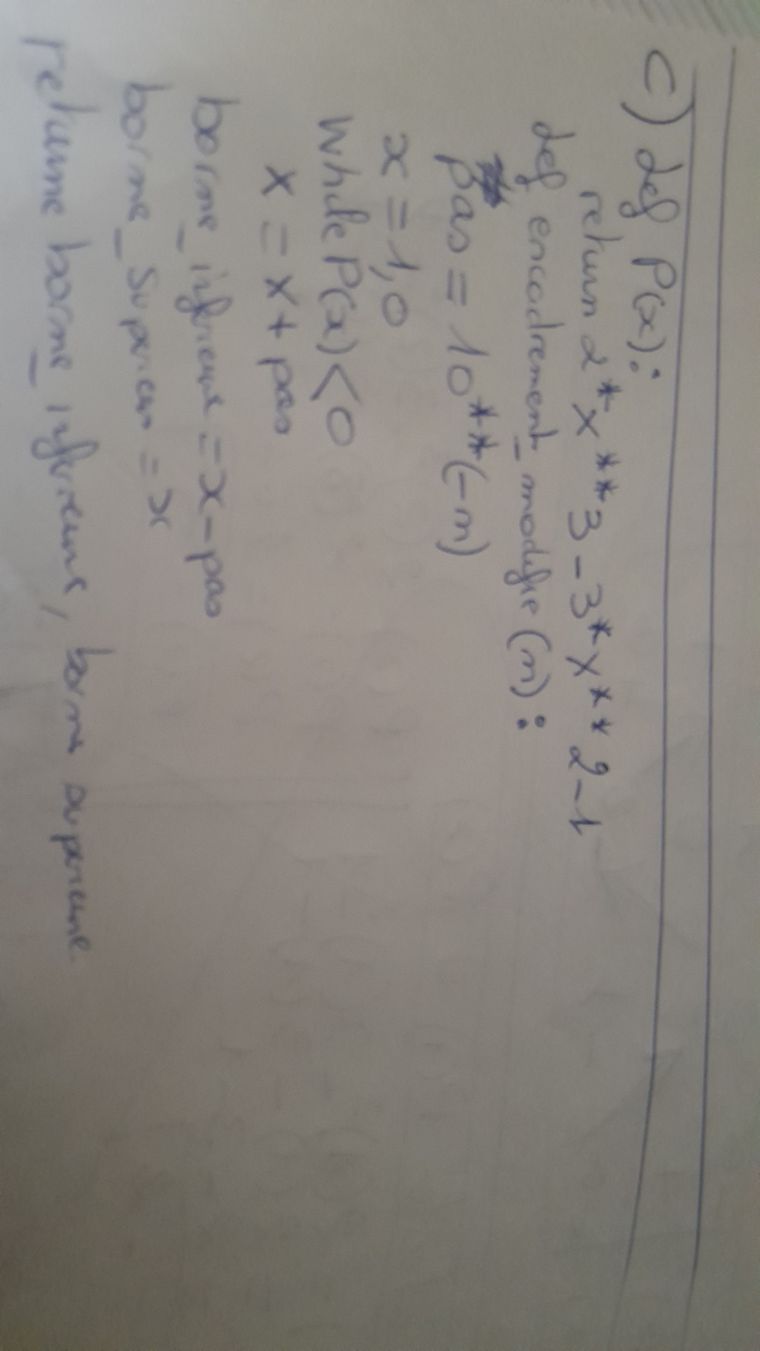 c) def P(x):
return 2*x**3-3*x**2-1
def encadrement_modifie (n):
pas = 10**(-n)
x = 1,0
while P(x) < 0
x = x + pas
borne_inferieure = x - pas
borne_superieur = x
returne borne_inferieure, borne superieure